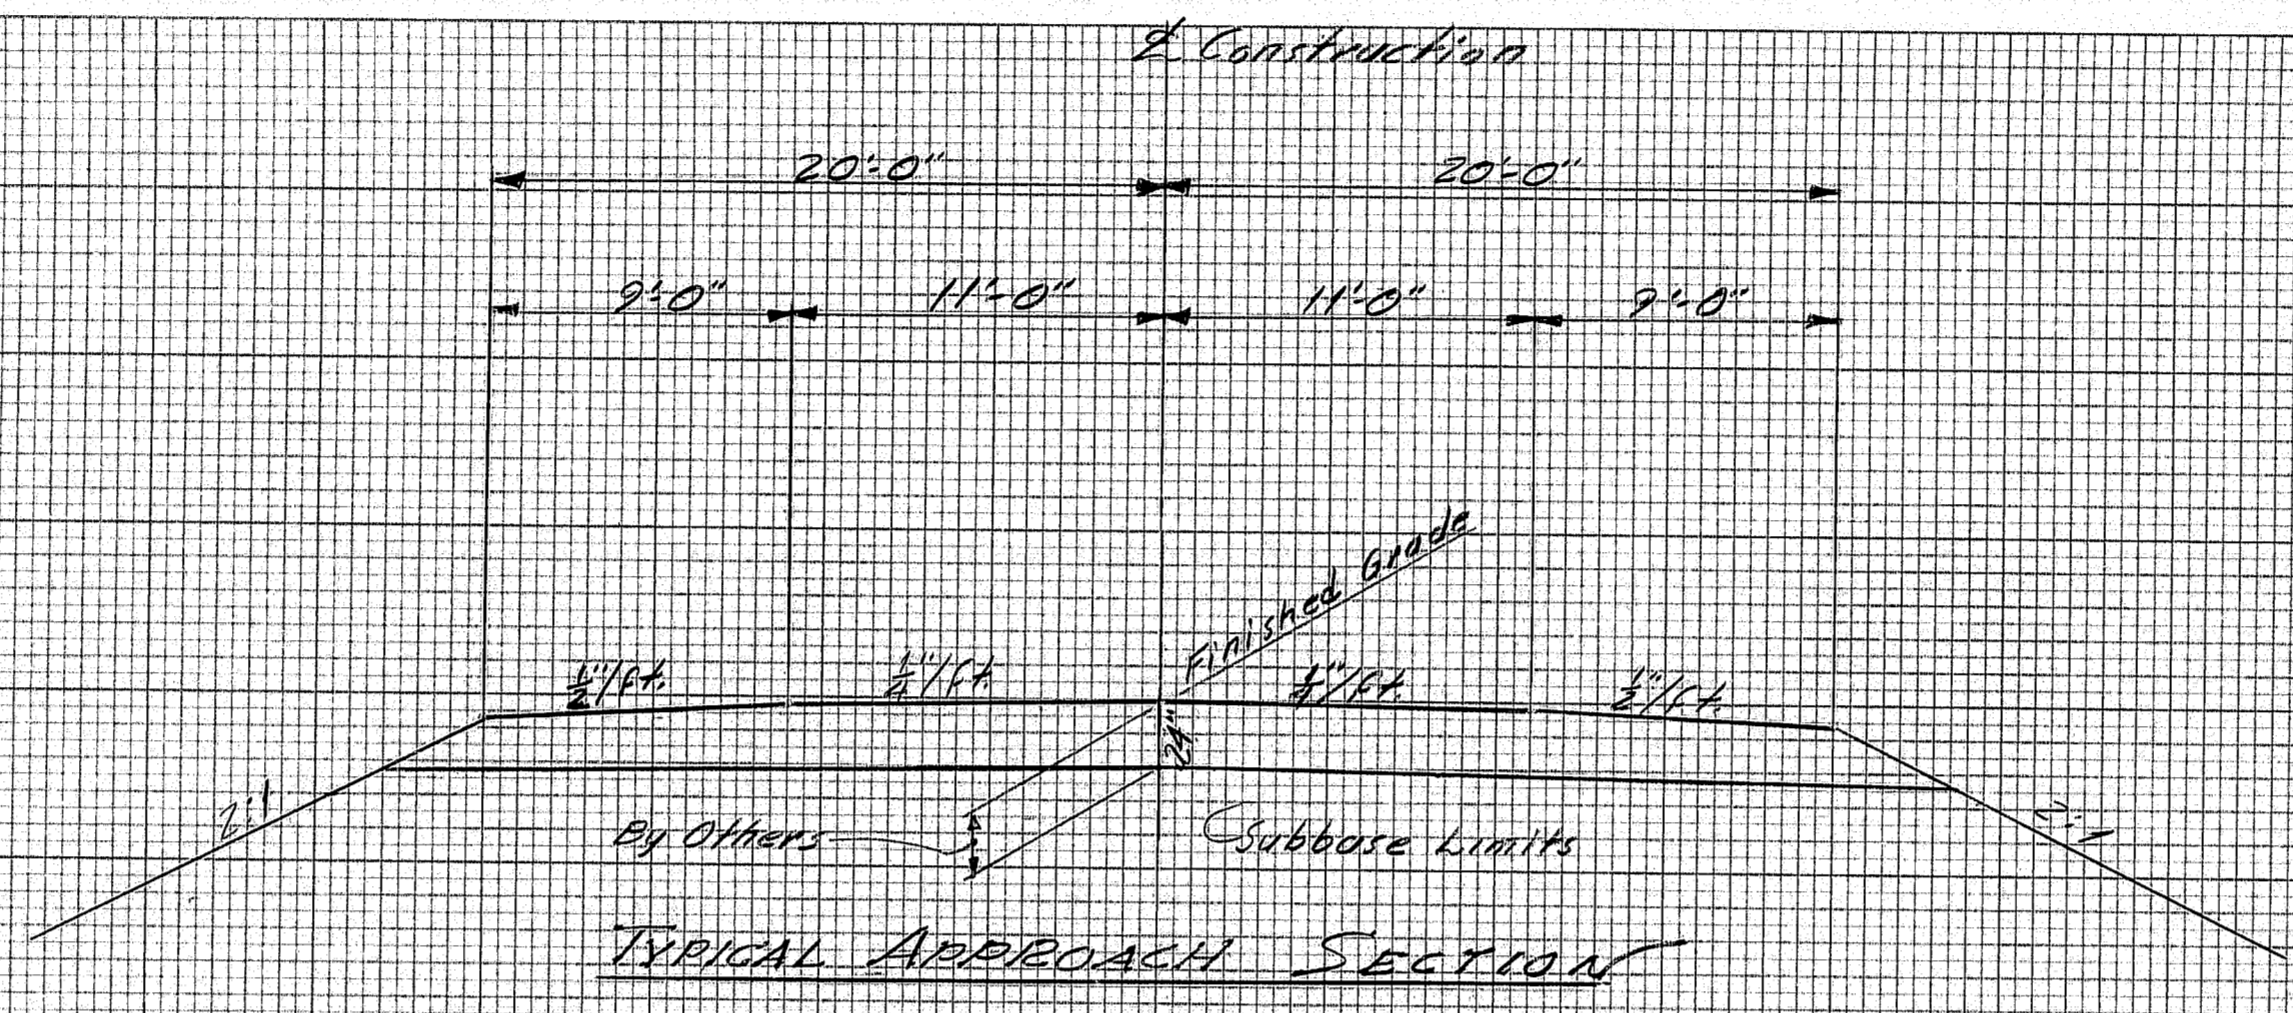 ℄ Construction
20'-0" 20'-0"
9'-0" 11'-0" 11'-0" 9'-0"
Finished Grade
1/2"/ft. 1/4"/ft. 1/4"/ft. 1/2"/ft.
24"
2:1 2:1
By Others Subbase Limits
TYPICAL APPROACH SECTION